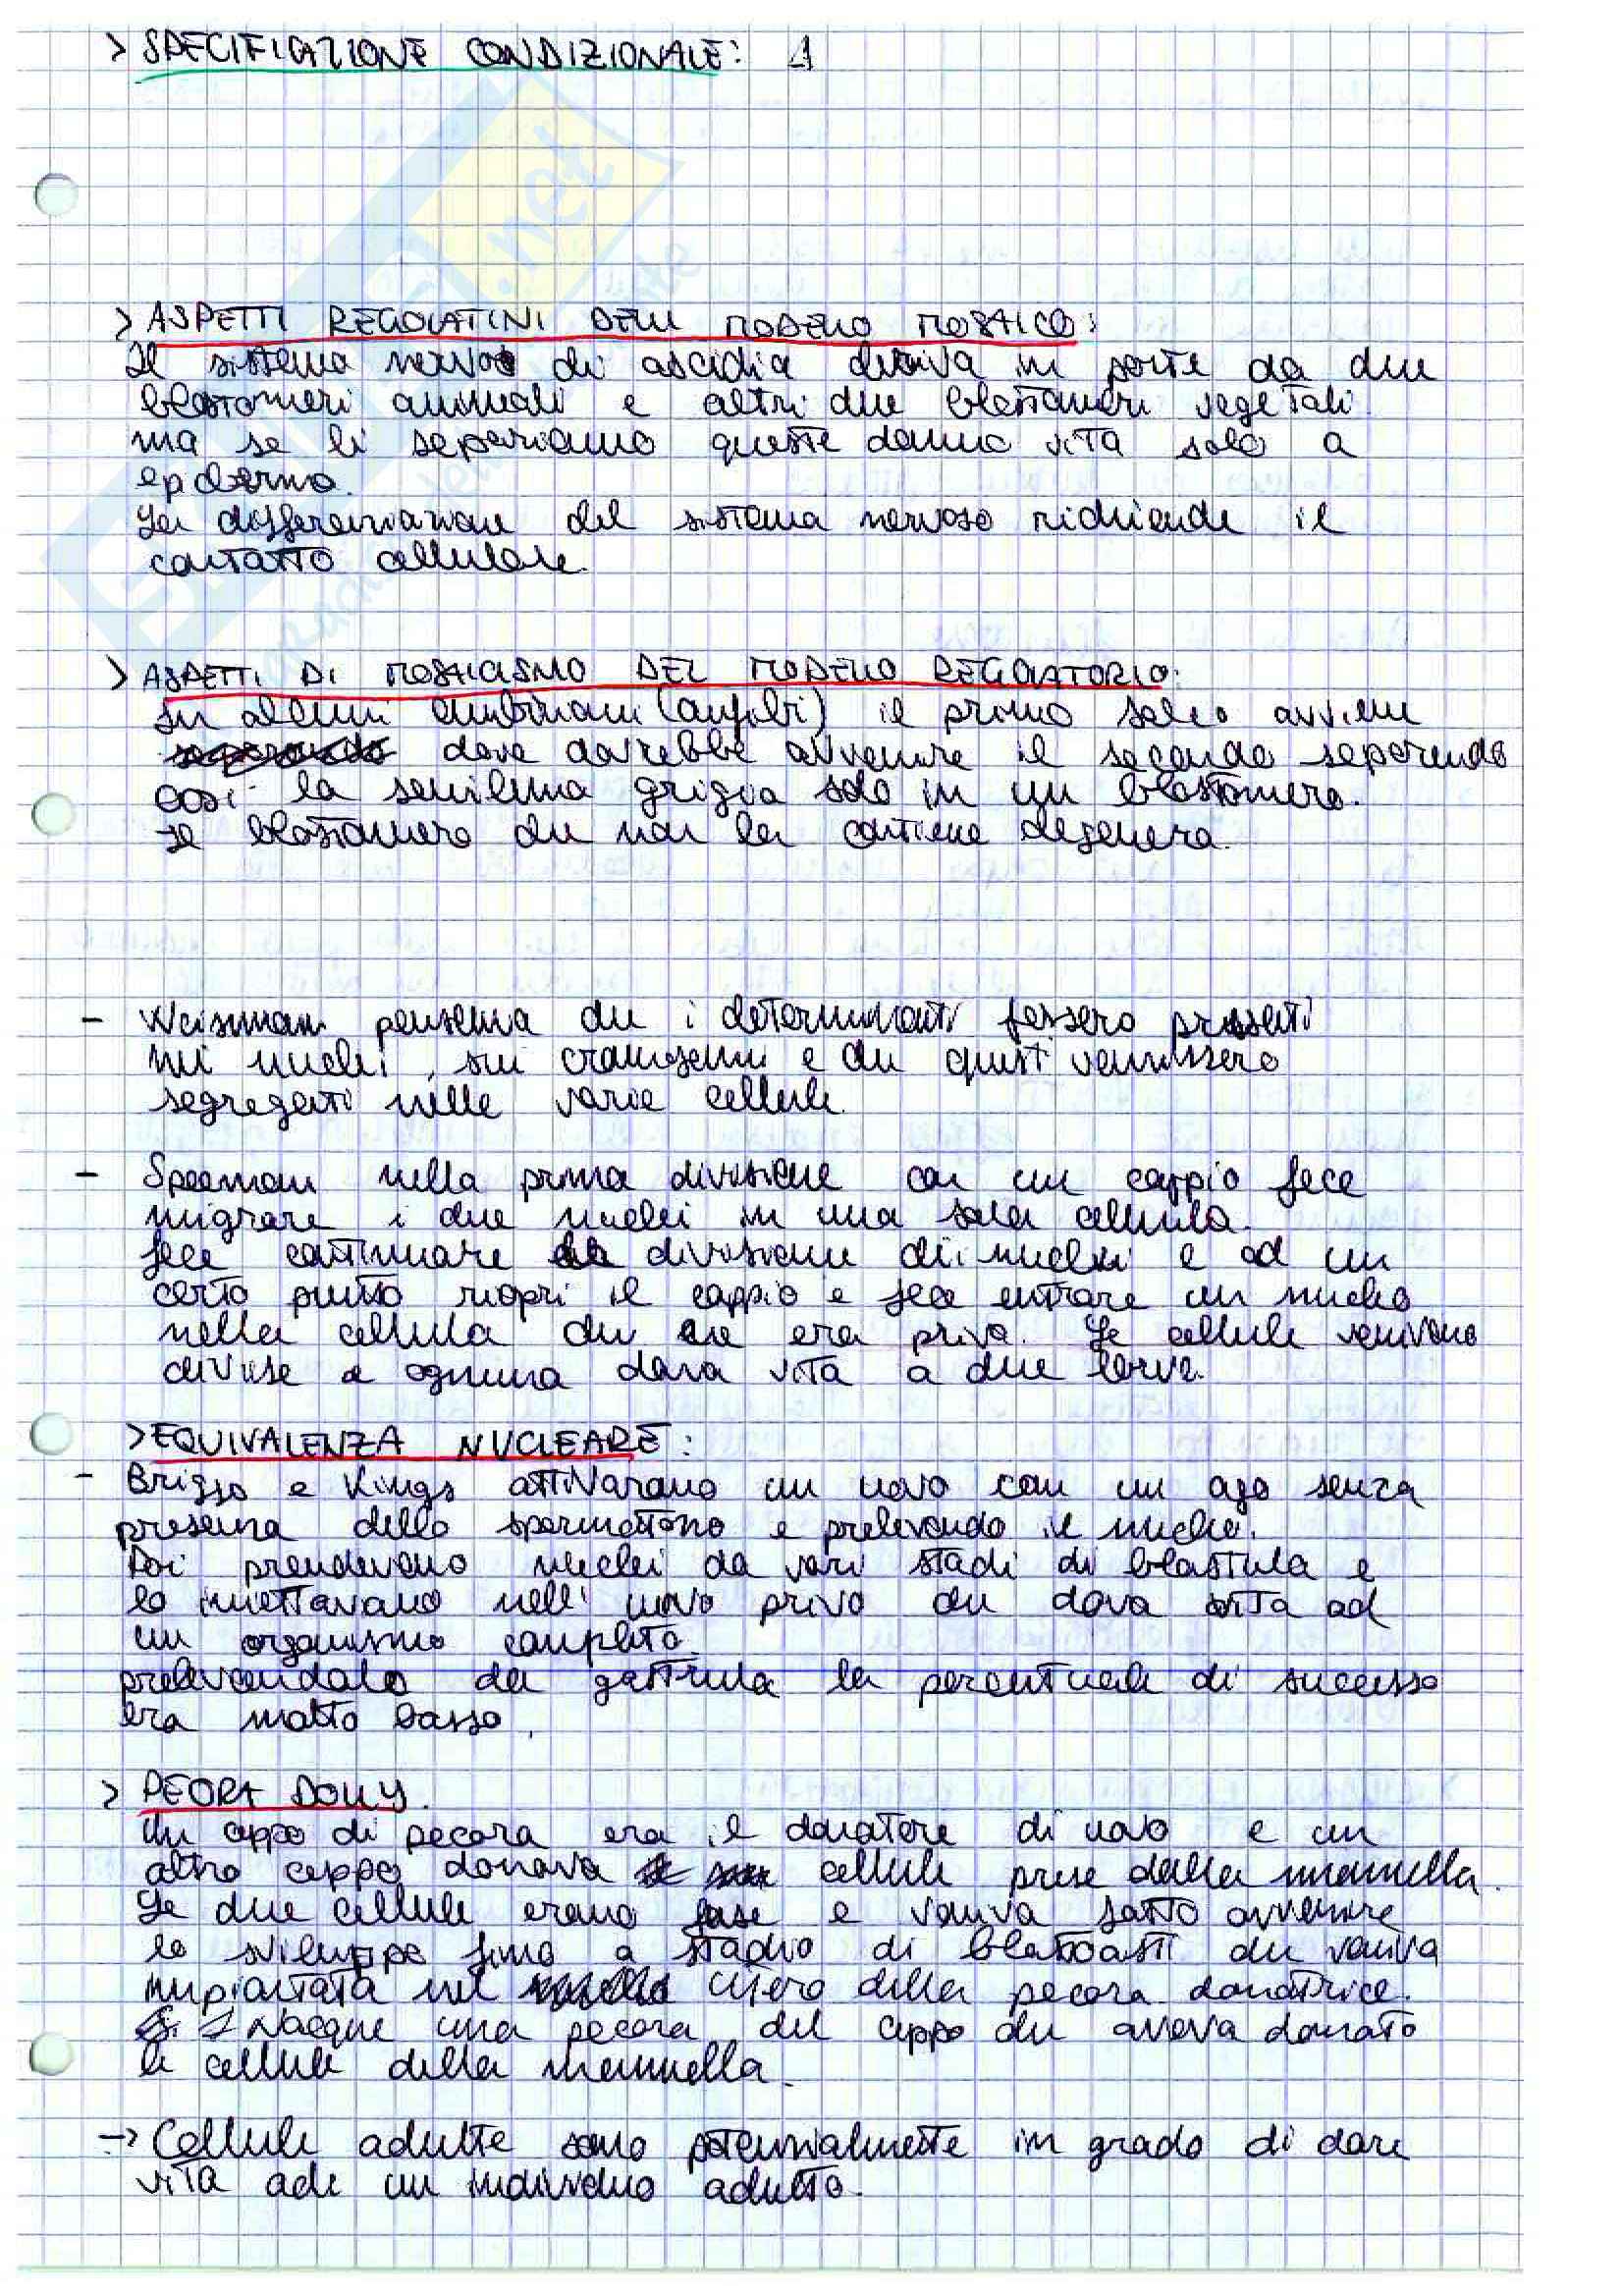 > SPECIFICAZIONE CONDIZIONALE: 1
> ASPETTI REGOLATIVI DELL MODELLO MOSAICO:
Il sistema nervoso di ascidia deriva in parte da due
blastomeri animali e altri due blastomeri vegetali
ma se li separiamo queste danno vita solo a
epidermo.
La differenziazione del sistema nervoso richiede il
contatto cellulare.
> ASPETTI DI MOSAICISMO DEL MODELLO REGOLATORIO:
In alcuni embrioni (anfibi) il primo solco avviene
dove dovrebbe avvenire il secondo separando
così la semiluna grigia solo in un blastomero.
Il blastomero che non la contiene degenera.
- Weisman pensava che i determinanti fossero presenti
nei nuclei, sui cromosomi e che questi venissero
segregati nelle varie cellule.
- Speeman nella prima divisione con un cappio fece
migrare i due nuclei in una sola cellula.
fece continuare la divisione dei nuclei e ad un
certo punto riaprì il cappio e fece entrare un nucleo
nella cellula che ne era priva. Le cellule venivano
divise e ognuna dava vita a due larve.
> EQUIVALENZA NUCLEARE:
- Briggs e Kings attivarono un uovo con un ago senza
presenza dello spermattono e prelevando il nucleo.
Poi prendevano nuclei da vari stadi di blastula e
lo iniettavano nell' uovo privo che dava vita ad
un organismo completo.
prelevandolo da gastrula la percentuale di successo
era molto basso.
> PEORA DOLLY.
Un ceppo di pecora era il donatore di uovo e un
altro ceppo donava cellule prese dalla mammella.
Le due cellule erano fase e veniva fatto avvenire
lo sviluppo fino a stadio di blatocisti che veniva
impiantata nel utero della pecora donatrice.
Nacque una pecora del ceppo che aveva donato
le cellule della mammella.
→ Cellule adulte sono potenzialmente in grado di dare
vita ade un individuo adulto.